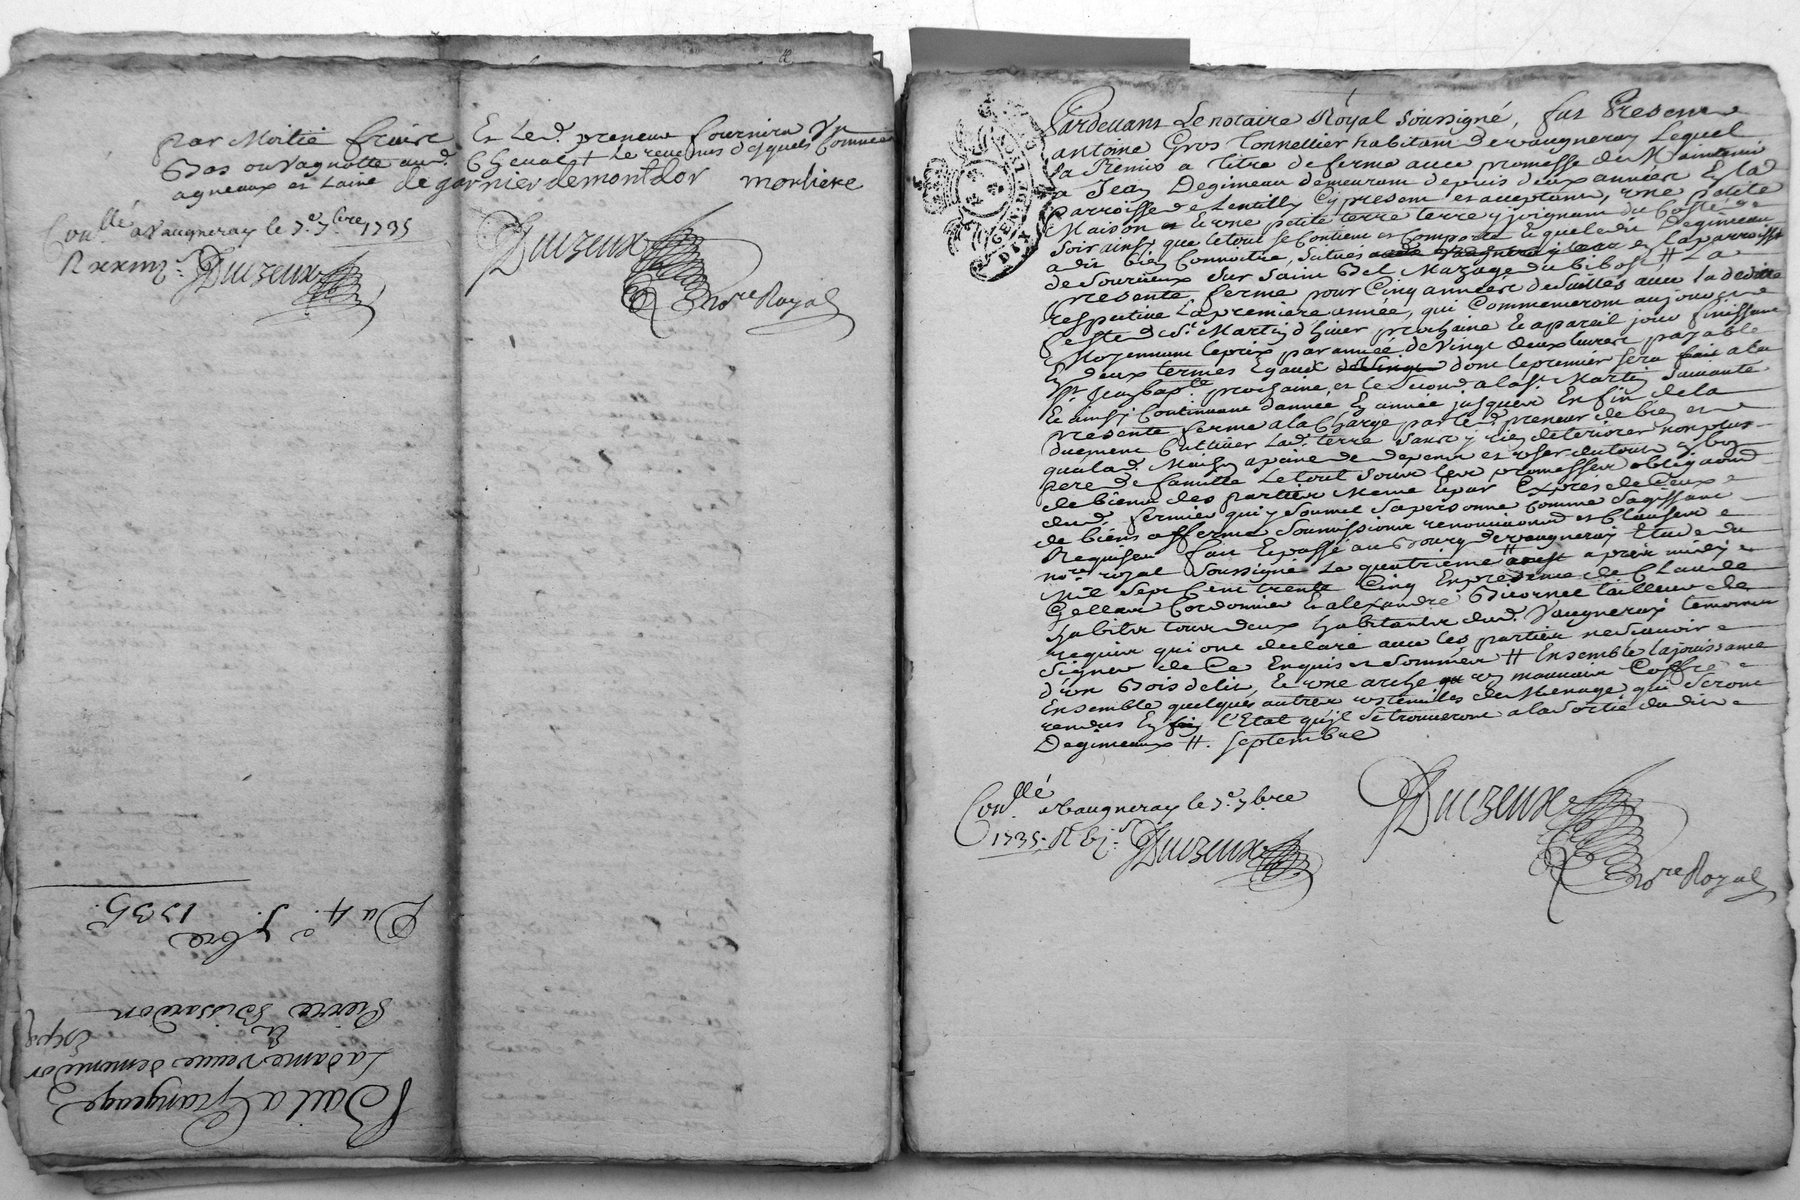 par Moitié fruict Et Led. preneur fournira Un
Bas ou Vagnotte aud. Cheval + le revenus desquels comme
agneaux et Laine de garnier demontdor morliere
Con.llé a Vaugneray le 7.e 7.bre 1735
R xxm s. Duizeux
Duizeux
no.re Royal
Bail a Grangeage
La dame veuve demontdor
Et
Pierre Boissardon
Du 4.e 7.bre
1735.
Pardevant Le notaire Royal Soussigné, fut Present
antoine Gros Tonnellier habitant de vaugneray Lequel
a Remis a titre de ferme avec promesse de Maintenir
a Jean Degimeau demeurant depuis deux années En la
parroisse de Lentilly Cy present et acceptant, une petite
Maison et Erne petite terre terre y joignant du Costé de
Soir ainsy que le tout se Contient et Comporte Et que led. Degimeau
a dit bien Connoitre, situés en La parroisse
de Sourcieux sur Saint Bel Mazage du bibost # La
presente ferme pour Cinq années de suittes avec la dedite
respective La premiere année, qui Commenceront au jour et
feste de St. Martin d'hiver prochaine Et a pareil jour finissant
Moyennant le prix par année de Vingt deux livres payable
En deux termes Egaux dont le premier sera fait a la
St. Jean bapt.te prochaine, et le Second a la St. Martin Suivante
Et ainsy Continuant d'année En année jusques En fin de la
presente ferme a la Charge par led. preneur de bien et
duement Cultiver lad. terre sans y rien deteriorer non plus
qu'a lad. Maison a peine de depens et User du tout En bon
pere de famille Le tout sous les promesses obligaons
de biens des parties Meme Et par Expres de Ceux
dud. fermier qui y soumet Sa personne Comme S'agissant
de biens affermé Soumissions renonciaons et Clauses
Requises fait Et passé au Bourg de vaugneray Etude du
no.re royal Soussigné Le quatrieme # apres midy
Mil Sept Cent trente Cinq En presence de Claude
Gellas Cordonnier Et alexandre Bicornet tailleur de
habits tous deux habitants dud. Vaugneray temoins
requis qui ont declaré avec les parties ne Scavoir
Signer de Ce Enquis et Sommés # Ensemble la jouissance
d'un Bois de lit, Et une arche un mauvais Coffre
Ensemble quelques autres ustenciles de Menage qui Seront
rendus En l'Etat qu'il Se trouveront a la Sortie du dit
Degimeaux #. Septembre
Con.llé a Vaugneray le 7.e 7.bre
1735. R vj s. Duizeux
Duizeux
no.re Royal